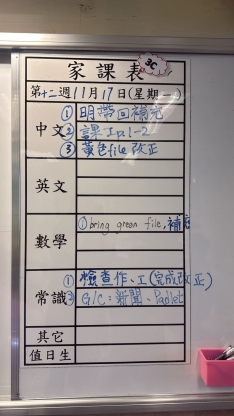 家課表
3C
第十二週 11月17日(星期一)
中文
① 明帶回補充
② 課工p1-2
③ 黃色file改正
英文
數學
① bring green file, 補充
常識
① 檢查作、工(完成改正)
② G/C: 新聞、Padlet
其它
值日生